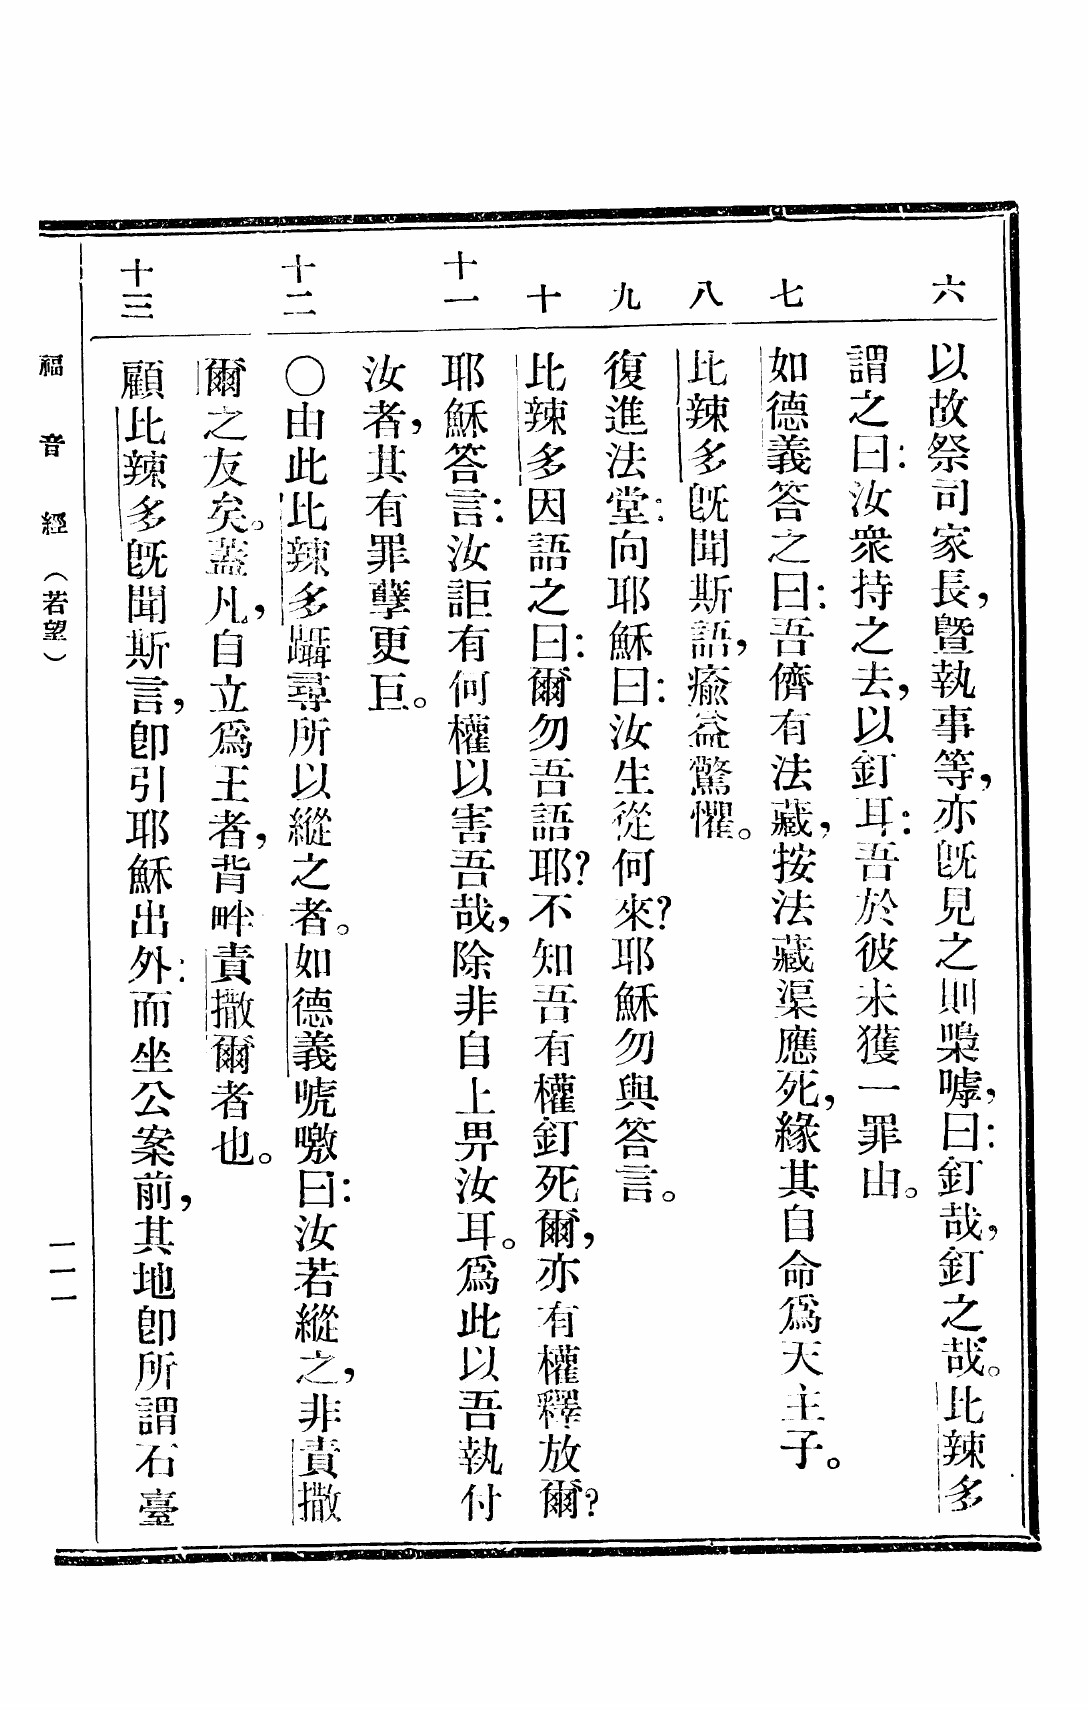 六
以故祭司家長，曁執事等，亦旣見之則㗼嘑，曰：釘哉，釘之哉。比辣多
謂之曰：汝衆持之去，以釘耳：吾於彼未獲一罪由。
七
如德義答之曰：吾儕有法藏，按法藏渠應死，緣其自命爲天主子。
八
比辣多旣聞斯語，瘉益驚懼。
九
復進法堂：向耶穌曰：汝生從何來？耶穌勿與答言。
十
比辣多因語之曰：爾勿吾語耶？不知吾有權釘死爾，亦有權釋放爾？
十一
耶穌答言：汝詎有何權以害吾哉，除非自上畀汝耳。爲此以吾執付
汝者，其有罪孽更巨。
十二
〇由此比辣多躡尋所以縱之者。如德義唬噭曰：汝若縱之，非責撒
爾之友矣。蓋凡，自立爲王者，背畔責撒爾者也。
十三
顧比辣多旣聞斯言，卽引耶穌出外：而坐公案前，其地卽所謂石臺
福音經（若望）
一一一